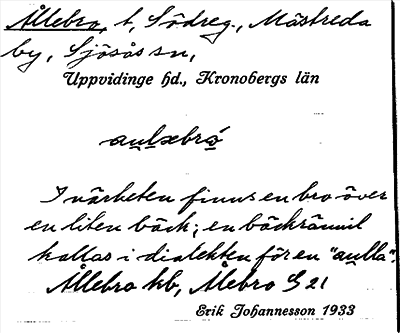 Ållebro, t, Södreg., Mästreda
by, Sjösås sn,
Uppvidinge hd., Kronobergs län
au̲l̲əbrọ́
I närheten finns en bro över
en liten bäck; en bäckrännil
kallas i dialekten för en "au̲lla".
Ållebro kb, Ålebro G 21
Erik Johannesson 1933